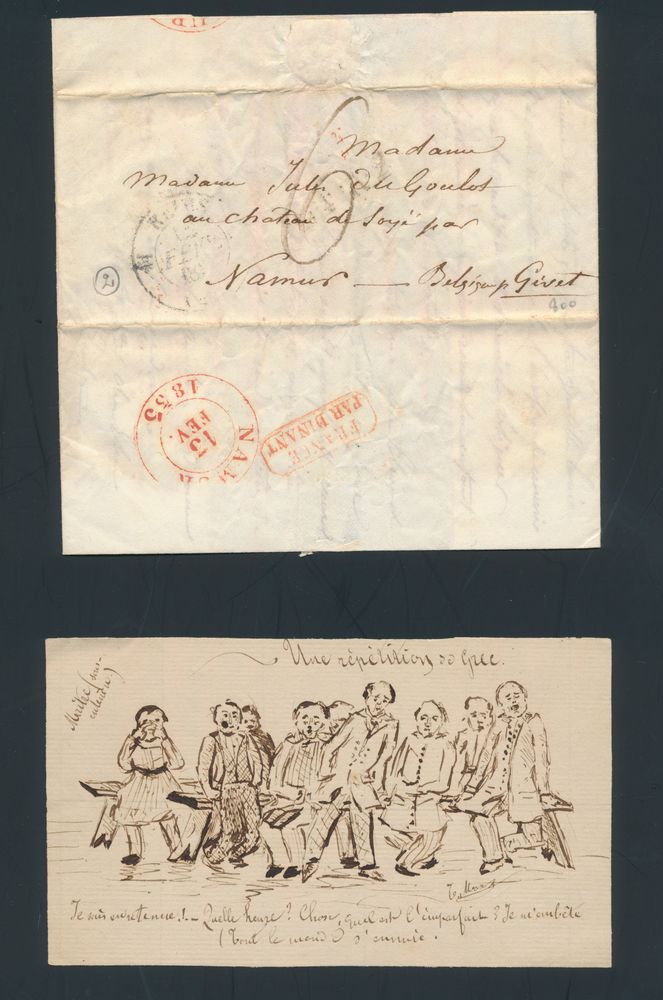 Madame
Madame Jules du Goulot
au chateau de Soyé par
Namur — Belgique p Givet
400
6
2
NAMUR
13
FEV.
1835
FRANCE
PAR DINANT
Une répétition de Grec.
Maître (sous-
entendu)
Je suis enretenue.! – Quelle heure? Chose, quel est l'imparfait? Je m'embête
(Tout le monde s'ennuie.